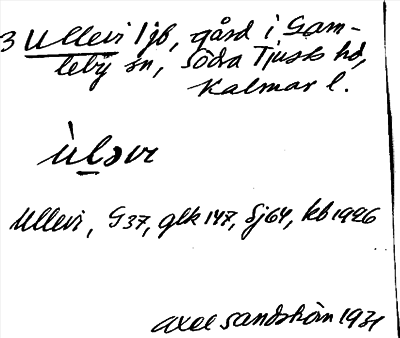 3 Ullevi ljb, gård i Gam-
leby sn, Södra Tjusts hd,
Kalmar l.
ùləvɩ
Ullevi, G37, glk 147, Sj64, kb 1926
Axel Sandström 1931